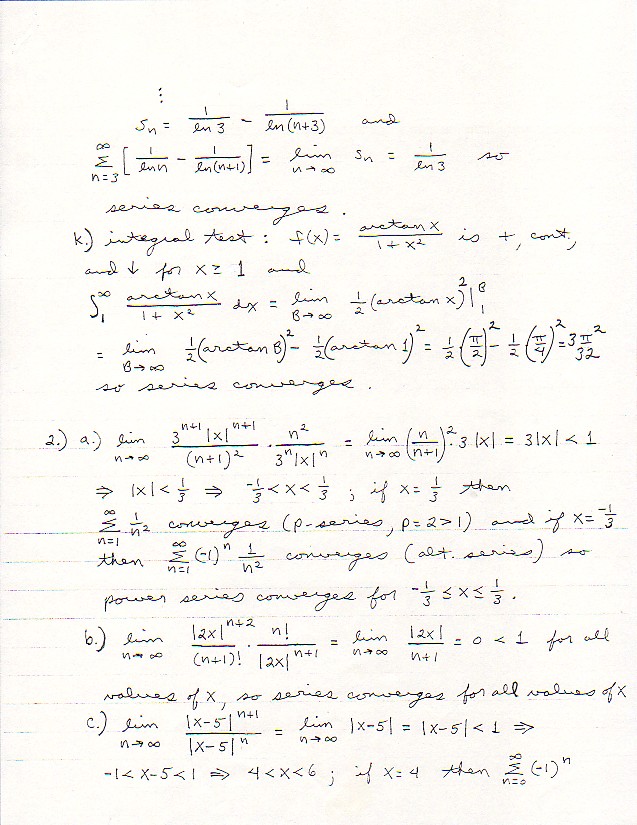 ⋮
Sn = 1/ln 3 - 1/ln(n+3) and
∞ Σ n=3 [1/ln n - 1/ln(n+1)] = lim n→∞ Sn = 1/ln 3 so
series converges.
k.) integral test : f(x) = arctan x/1+x² is +, cont,
and ↓ for x ≥ 1 and
∫₁^∞ arctan x/1+x² dx = lim B→∞ ½(arctan x)² |₁^B
= lim B→∞ ½(arctan B)² - ½(arctan 1)² = ½(π/2)² - ½(π/4)² = 3π²/32
so series converges.
2.) a.) lim n→∞ 3^(n+1)|x|^(n+1)/(n+1)² · n²/3^n|x|^n = lim n→∞ (n/n+1)² · 3|x| = 3|x| < 1
⇒ |x| < 1/3 ⇒ -1/3 < x < 1/3 ; if x = 1/3 then
∞ Σ n=1 1/n² converges (p-series, p=2>1) and if x = -1/3
then ∞ Σ n=1 (-1)^n 1/n² converges (alt. series) so
power series converges for -1/3 ≤ x ≤ 1/3.
b.) lim n→∞ |2x|^(n+2)/(n+1)! · n!/|2x|^(n+1) = lim n→∞ |2x|/n+1 = 0 < 1 for all
values of x, so series converges for all values of x
c.) lim n→∞ |x-5|^(n+1)/|x-5|^n = lim n→∞ |x-5| = |x-5| < 1 ⇒
-1 < x-5 < 1 ⇒ 4 < x < 6 ; if x = 4 then ∞ Σ n=0 (-1)^n